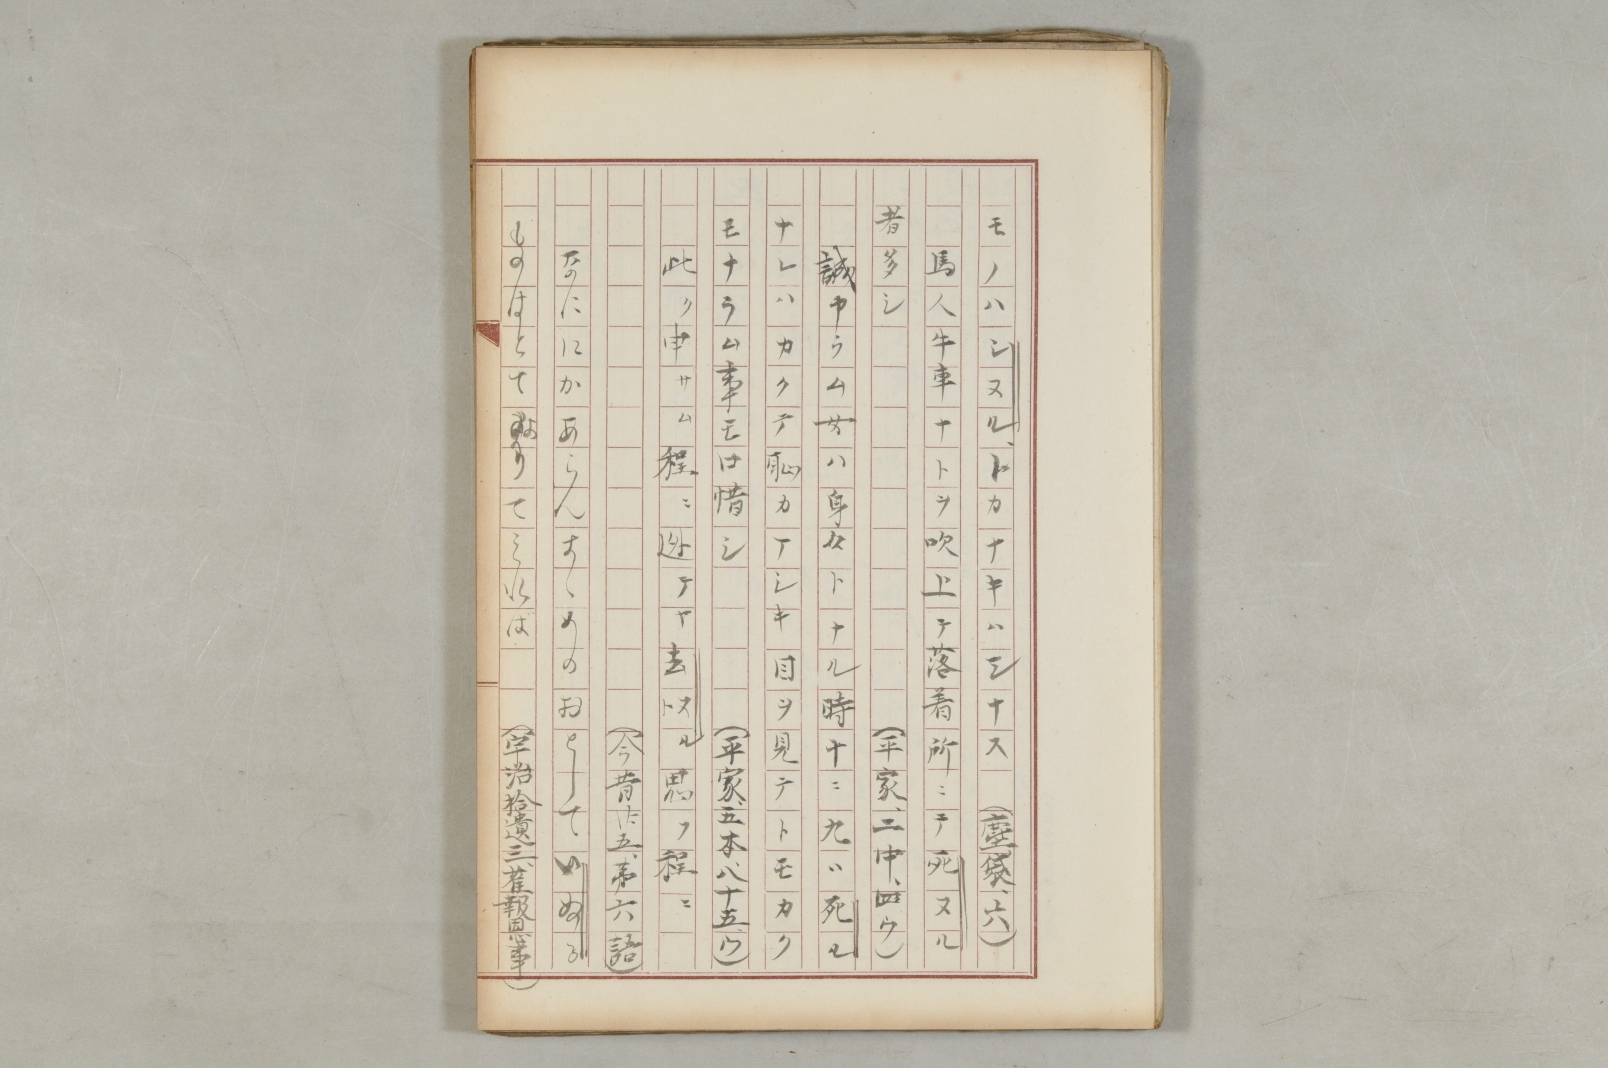 モノハシヌル、トカナキハシナス (塵袋、六)
馬人牛車ナトヲ吹上テ落着所ニテ死ヌル
者多シ (平家、二中、四ウ)
誠ヤラム女ハ身女トナル時十ニ九ハ死ル
ナレハカクテ恥カアシキ目ヲ見テトモカク
モナラム事モ口惜シ (平家、五本、八十五ウ)
此ク申サム程ニ逃テヤ去ヌル思フ程ニ
(今昔廿五、第六語)
なにゝかあらんすゝめのおとしていぬる
ものはとてよりてみれば (宇治拾遺三、雀報恩事)